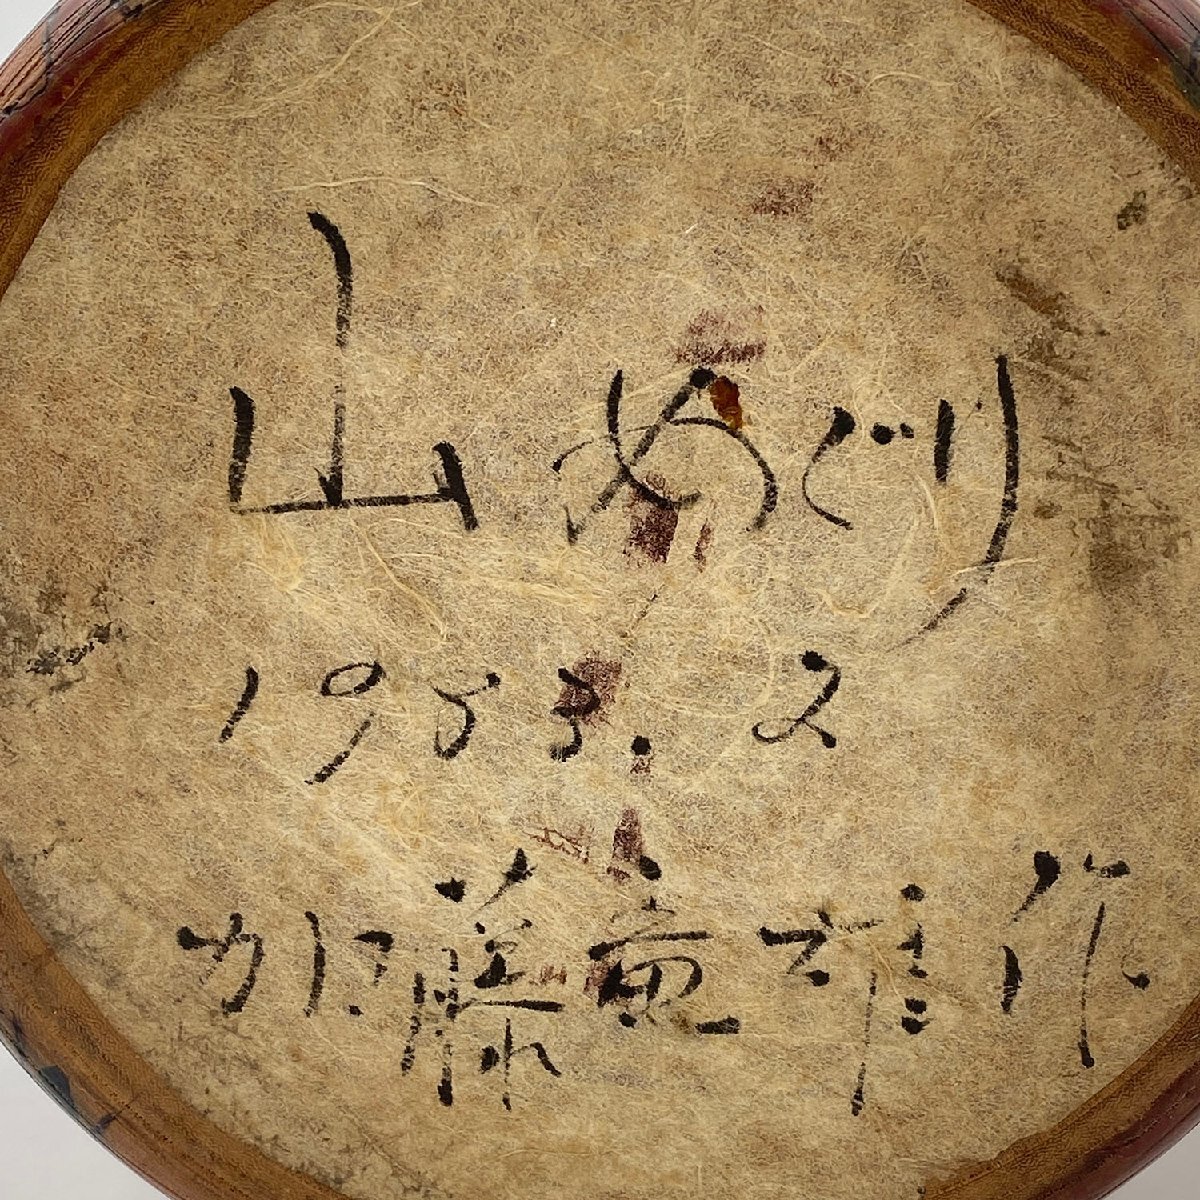 山めぐり
1983.2
加藤竜雄作